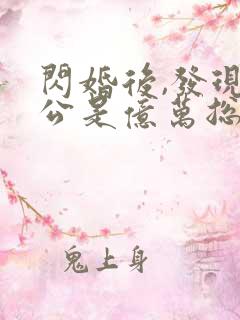 閃婚後,發現
公是億萬總
鬼上身